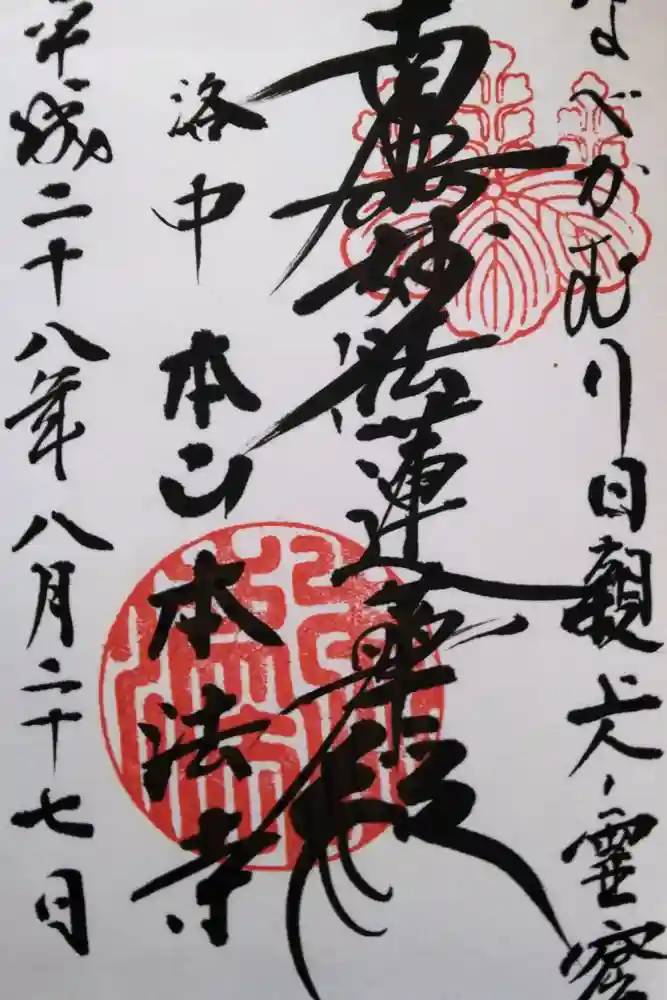 なべかむり日親上人霊窟
南無妙法蓮華経
洛中 本山 本法寺
平成二十八年八月二十七日